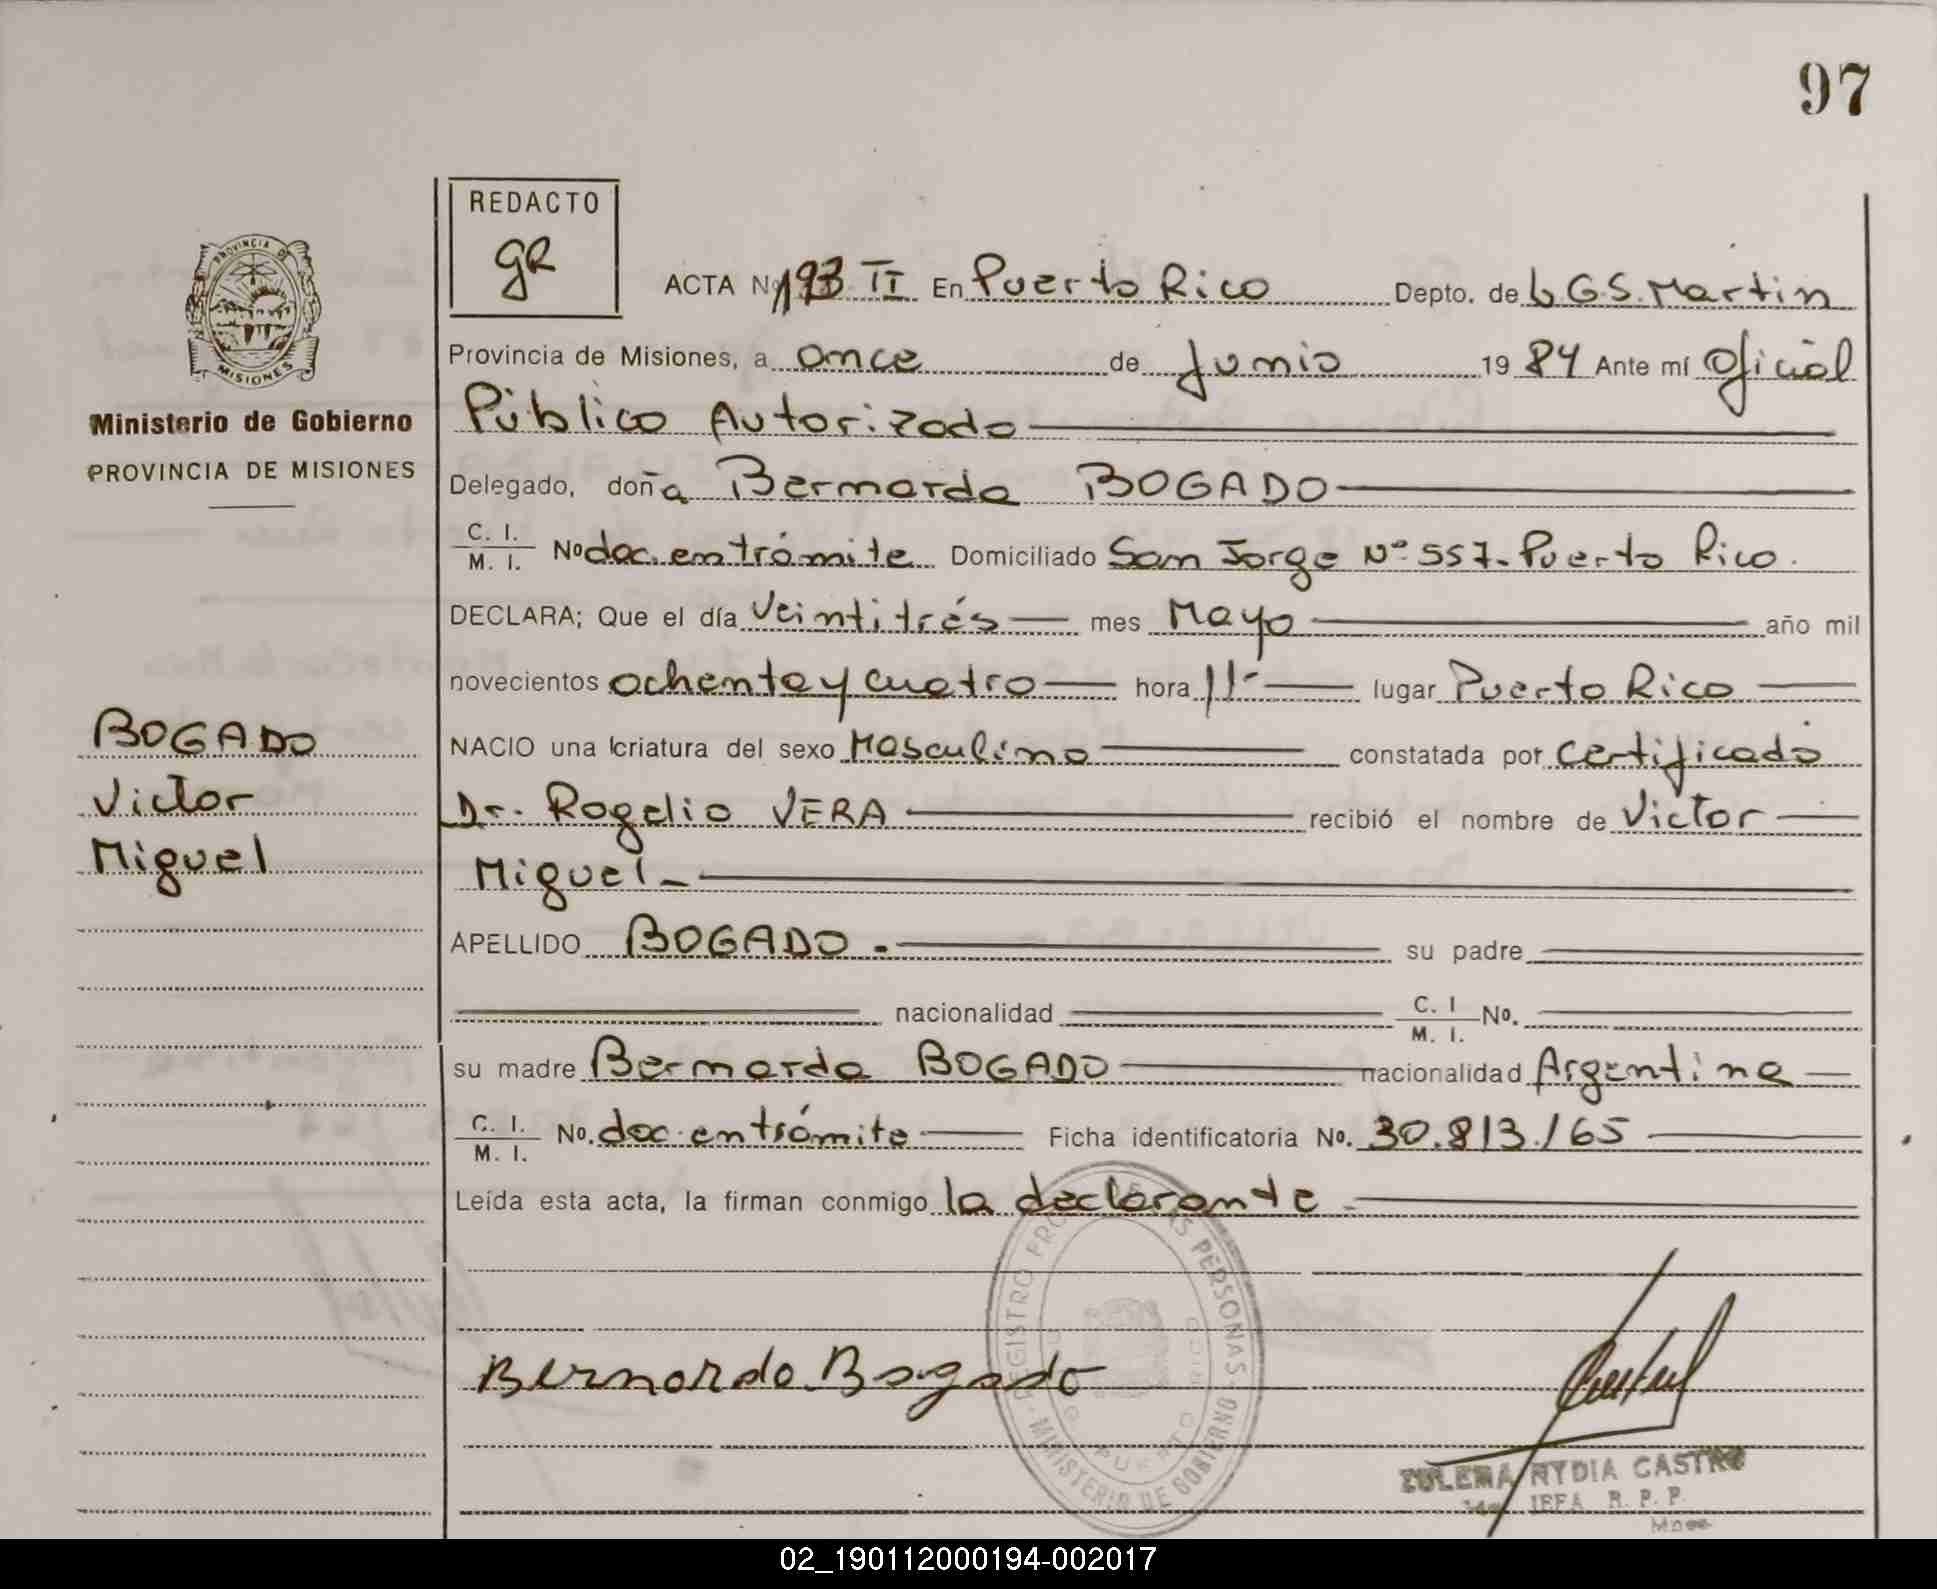 97
REDACTO
gR
PROVINCIA DE
MISIONES
Ministerio de Gobierno
PROVINCIA DE MISIONES
ACTA Nº 193 II En Puerto Rico Depto. de L.G.S. Martin
Provincia de Misiones, a once de Junio 1984 Ante mí Oficial
Público Autorizado
Delegado, doña Bernarda BOGADO
C. I.
M. I. Nº doc. en trámite Domiciliado San Jorge Nº 557- Puerto Rico.
DECLARA; Que el día Veintitrés mes Mayo año mil
novecientos ochenta y cuatro hora 11- lugar Puerto Rico
NACIO una criatura del sexo Masculino constatada por Certificado
Dr. Rogelio VERA recibió el nombre de Victor
Miguel-
APELLIDO BOGADO.- su padre
nacionalidad C. I M. I. No.
su madre Bernarda BOGADO nacionalidad Argentina
C. I.
M. I. No. doc. en trámite Ficha identificatoria No. 30.813/65
Leída esta acta, la firman conmigo la declarante-
BOGADO
Victor
Miguel
Bernardo Bogado
REGISTRO PERSONAS
MINISTERIO DE GOBIERNO
PUERTO RICO
ZULEMA NYDIA CASTRO
JEFA R. P. P.
Mnes
02_190112000194-002017